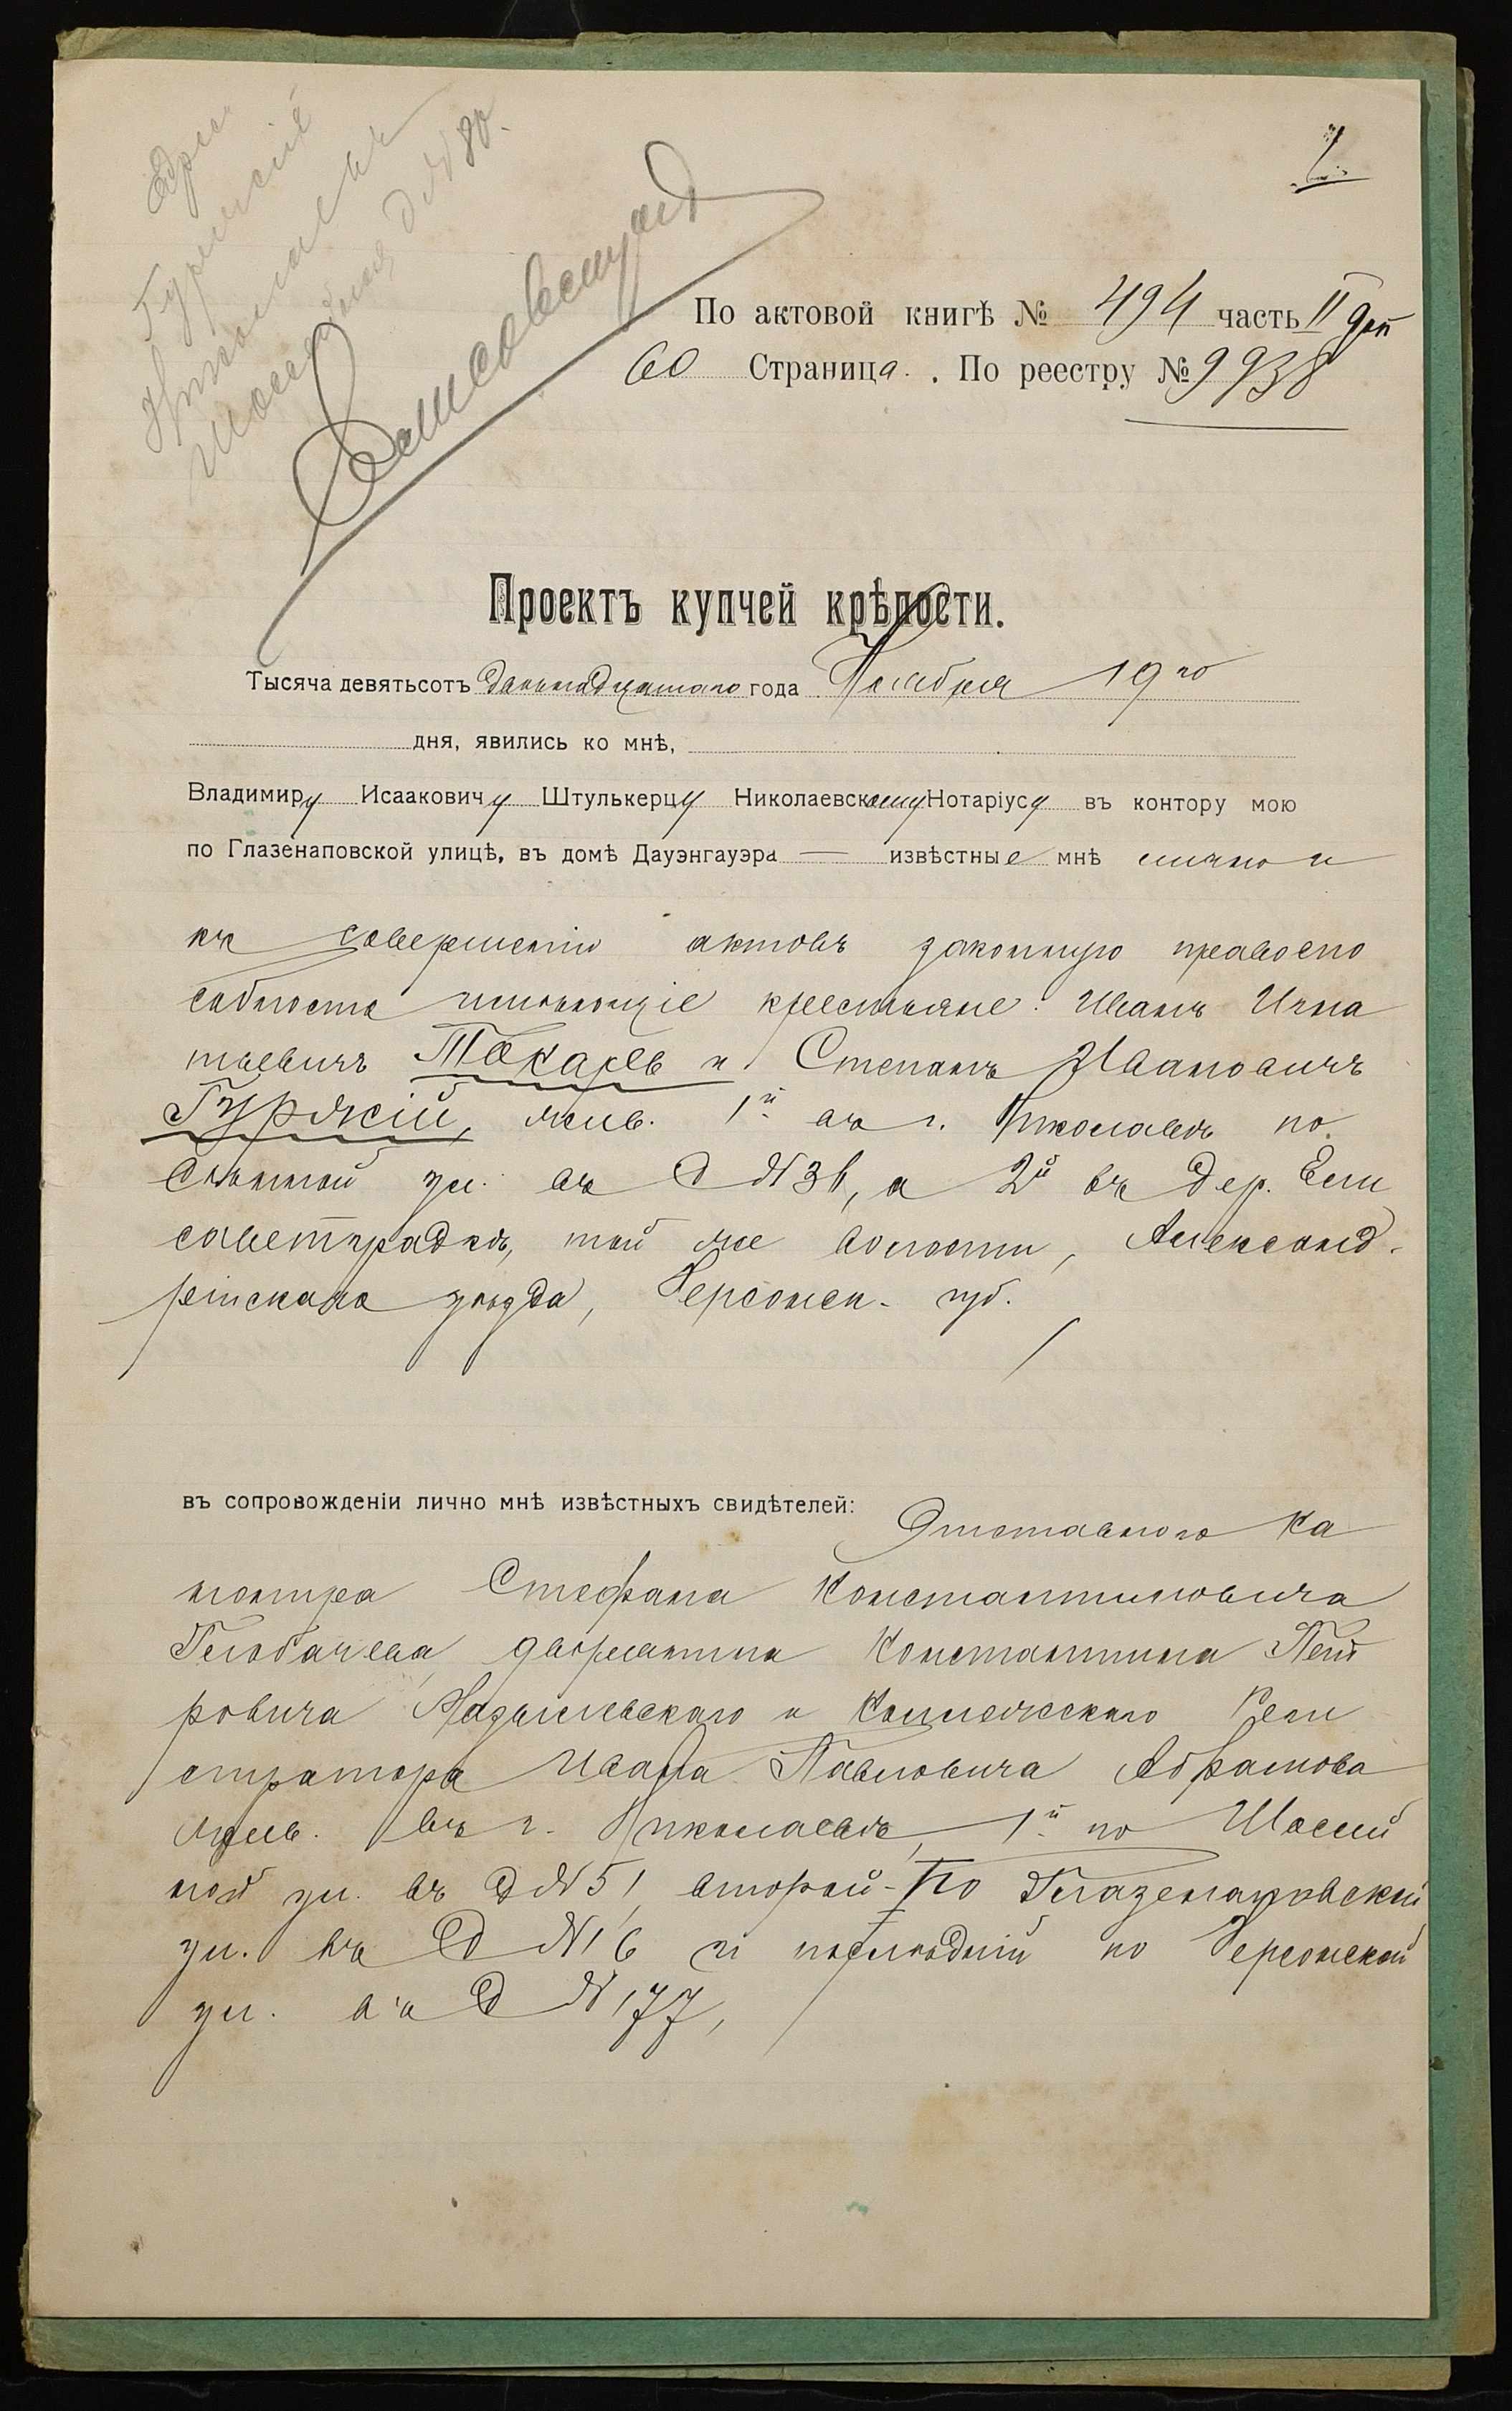 Адрес
Гуржсій
Николаевъ
Шоссейная, д. № 80.
По актовой книгѣ № 494 часть II
60 Страница. По реестру № 9938
Проектъ купчей крѣпости.
Тысяча девятьсотъ двенадцатаго года Ноября 19го
дня, явились ко мнѣ,
Владимиру Исааковичу Штулькерцу Николаевскому Нотаріусу въ контору мою
по Глазенаповской улицѣ, въ домѣ Дауэнгауэра — извѣстные мнѣ лично и
къ совершенію актовъ законную правоспо
собность имѣющіе крестьяне: Иванъ Игна
тьевичъ Токаревъ и Степанъ Ивановичъ
Гуржсій, жив. 1й въ г. Николаевѣ по
ул. въ д №, а 2й въ дер. Ели
саветградкѣ, той же волости, Александ-
рійскаго уѣзда, Херсонск. губ.
въ сопровожденіи лично мнѣ извѣстныхъ свидѣтелей: Отставного Ка
нонира Стефана Константиновича
Глобачева, дворянина Константина Пет
ровича и Коллежскаго Реги
стратора Ивана Павловича Абрамова
жив. въ г. Николаевѣ, 1й по Шоссей
ной ул. въ д № 51, второй - по Глазенаповской
ул. въ д № 16 и послѣдній по Херсонской
ул. въ д № 177,